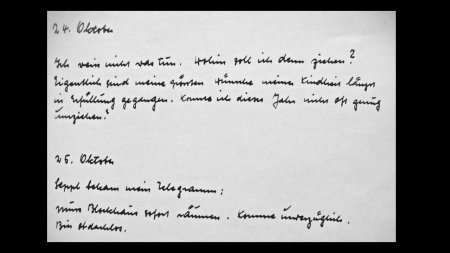 24. Oktober
Ich weiß nicht was tun. Wohin soll ich denn ziehen?
Eigentlich sind meine grössten Wünsche meiner Kindheit längst
in Erfüllung gegangen. Konnte ich dieses Jahr nicht oft genug
umziehen?
25. Oktober
Seppl bekam mein Telegramm:
Muss Blockhaus sofort räumen. Komme unverzüglich.
Bin obdachlos.